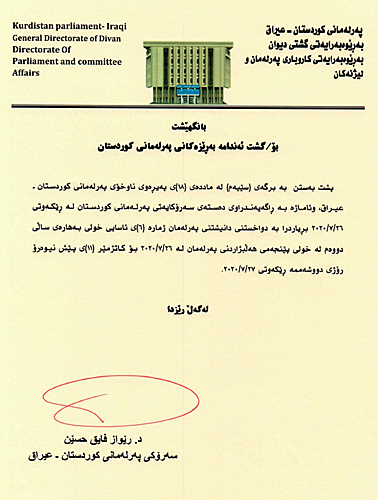 Kurdistan parliament- Iraqi
General Directorate of Divan
Directorate Of
Parliament and committee
Affairs
پەرلەمانی کوردستان - عیراق
بەڕێوەبەرایەتی گشتی دیوان
بەڕێوەبەرایەتی کاروباری پەرلەمان و
لیژنەکان
بانگهێشت
بۆ/ گشت ئەندامە بەڕێزەکانی پەرلەمانی کوردستان
پشت بەستن بە برگەی (سێیەم) لە ماددەی (١٨)ی پەیرەوی ناوخۆی پەرلەمانی کوردستان -
عیراق، وئاماژە بە ڕاگەیەندراوی دەستەی سەرۆکایەتی پەرلەمانی کوردستان لە ڕێکەوتی
٢٠٢٠/٧/٢٦ بڕیاردرا بە دواخستنی دانیشتنی پەرلەمان ژمارە (٦)ی ئاسایی خولی بەهارەی ساڵی
دووەم لە خولی پێنجەمی هەڵبژاردنی پەرلەمان لە ٢٠٢٠/٧/٢٦ بۆ کاتژمێر (١١)ی پێش نیوەڕۆ
ڕۆژی دووشەممە ڕێکەوتی ٢٠٢٠/٧/٢٧.
لەگەڵ ڕێزدا
د. ڕێواز فایق حسێن
سەرۆکی پەرلەمانی کوردستان - عیراق